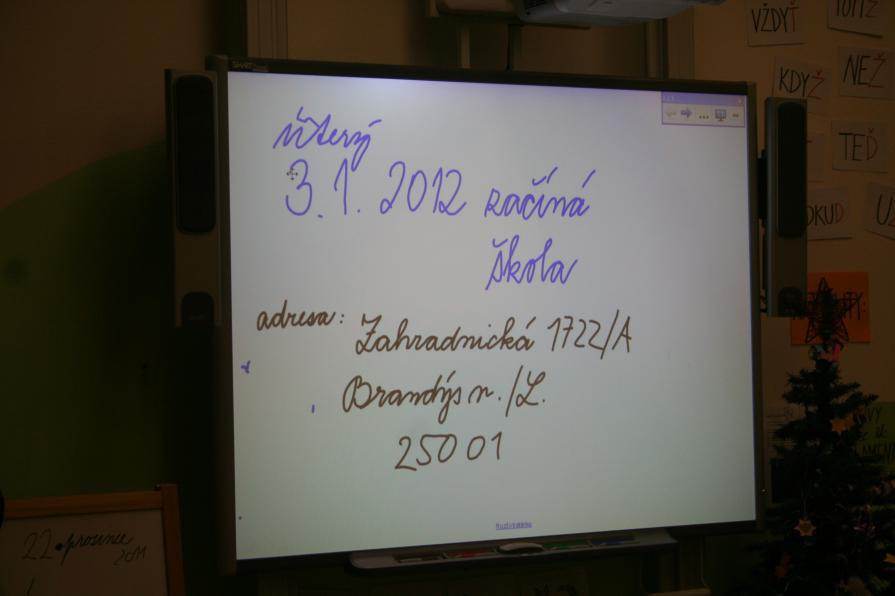 SMART
úterý
3.1. 2012 začíná
škola
adresa: Zahradnická 1722/A
Brandýs n./L.
250 01
22. prosince
2011
VŽDYŤ
KDYŽ
NEŽ
TEĎ